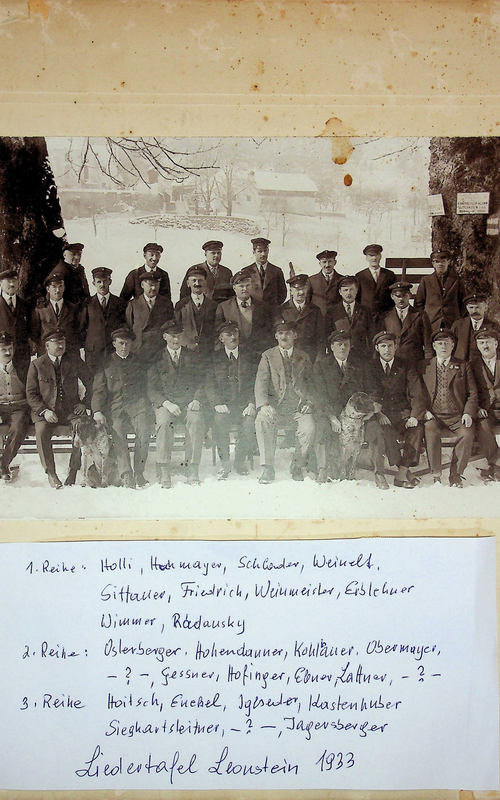 1. Reihe: Holli, Hochmayer, Schloader, Weinelt,
Sittauer, Friedrich, Weinmeister, Erblehner
Wimmer, Radansky
2. Reihe: Osterberger, Hohendanner, Kohlbauer, Obermayer,
- ? -, Gessner, Hofinger, Ebner, Lattner, - ? -
3. Reihe Hoitsch, Enekel, Kastenhuber
Sieghartsleitner, - ? -, Jagersberger
Liedertafel Leonstein 1933